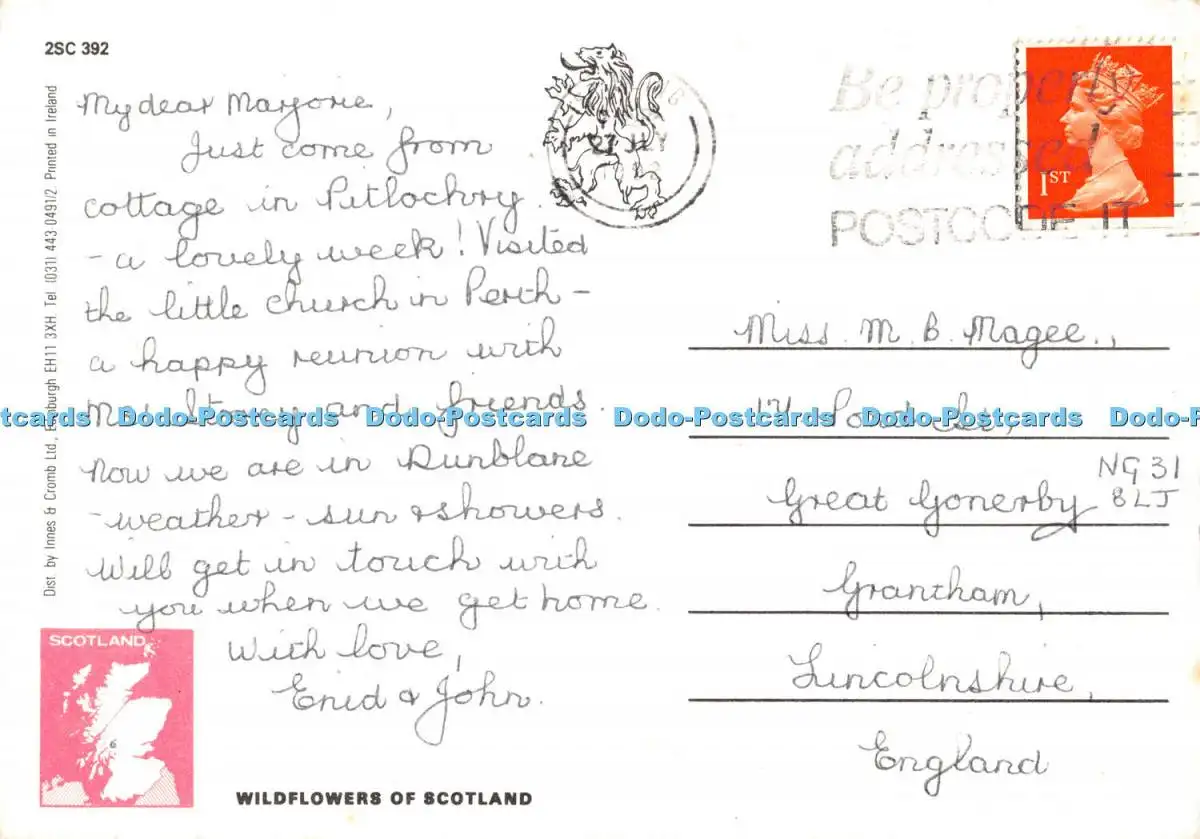 2SC 392
My dear Marjorie,
Just come from
cottage in Pitlochry
- a lovely week! Visited
the little church in Perth -
a happy reunion with
and friends.
Now we are in Dunblane
- weather - sun & showers.
Will get in touch with
you when we get home.
With love,
Enid & John.
Dist. by Innes & Cromb Ltd., Edinburgh EH11 3XH. Tel (031) 443 0491/2 Printed in Ireland
SCOTLAND
6
WILDFLOWERS OF SCOTLAND
27
Be properly
addressed
POSTCODE IT
1ST
Miss. M. B. Magee.,
Great Gonerby
NG31
8LJ
Grantham,
Lincolnshire,
England
Dodo-Postcards Dodo-Postcards Dodo-Postcards Dodo-Postcards